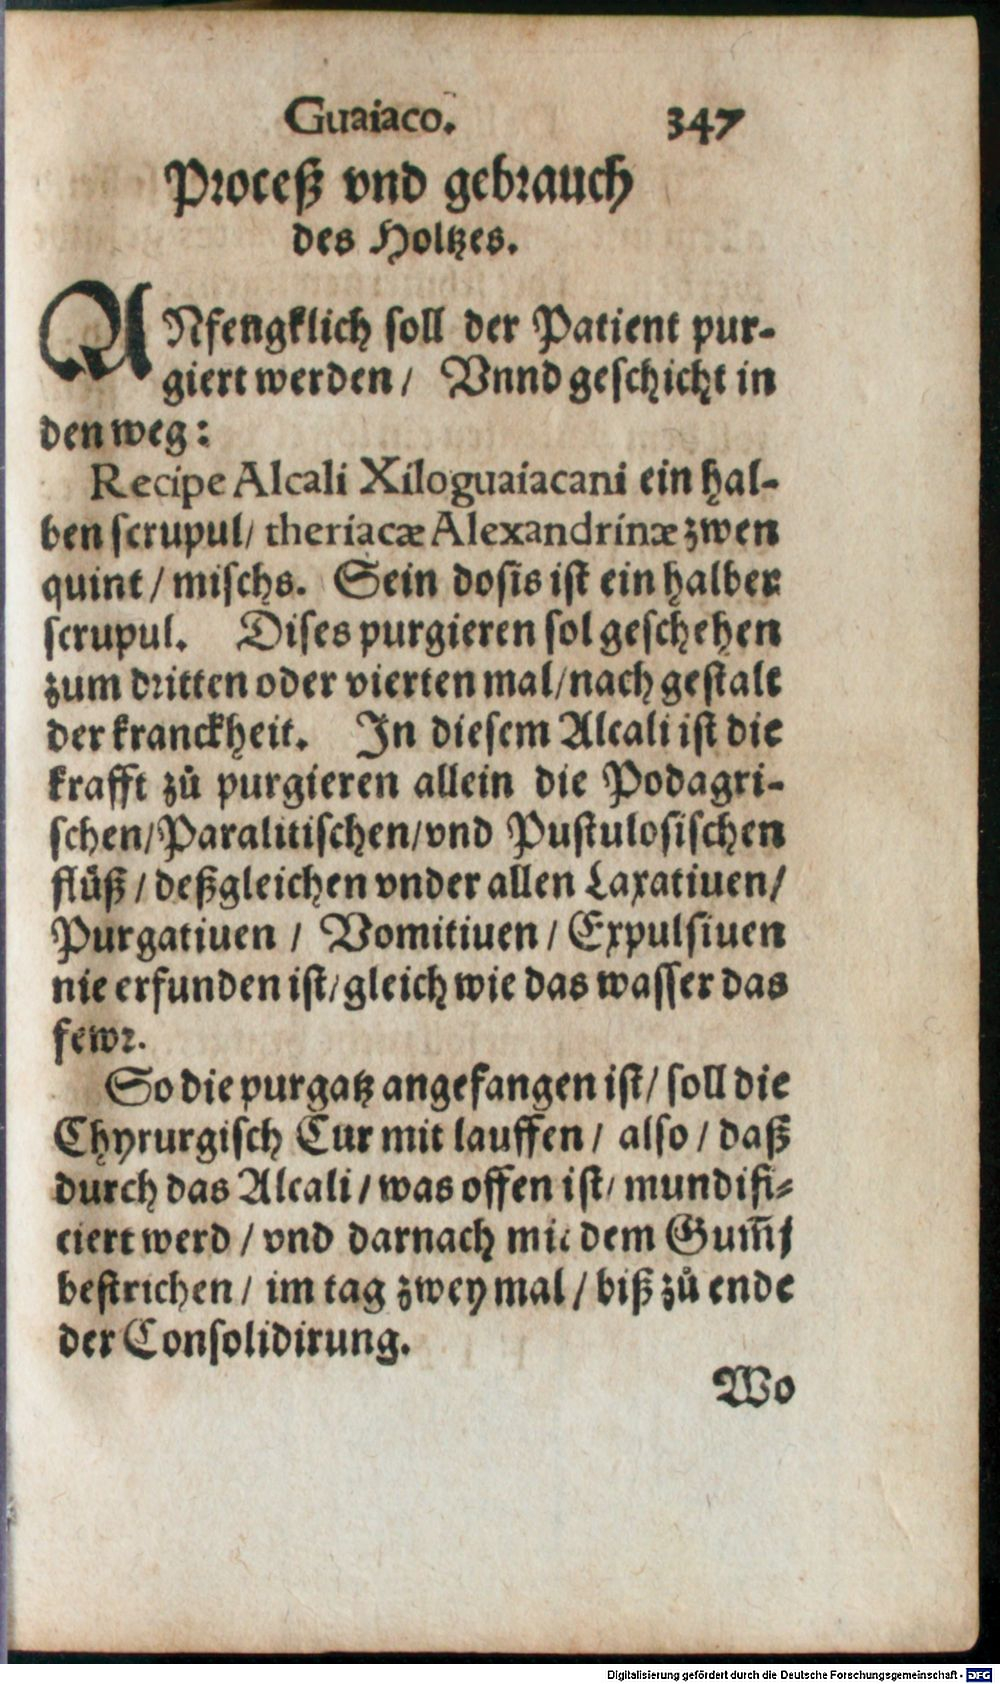 Guaiaco. 347
Proceß vnd gebrauch
des Holtzes.
ANfengklich soll der Patient pur-
giert werden / Vnnd geschicht in
den weg:
Recipe Alcali Xiloguaiacani ein hal-
ben scrupul / theriacæ Alexandrinæ zwen
quint / mischs. Sein dosis ist ein halber
scrupul. Dises purgieren sol geschehen
zum dritten oder vierten mal / nach gestalt
der kranckheit. In diesem Alcali ist die
krafft zů purgieren allein die Podagri-
schen / Paralitischen / vnd Pustulosischen
flüß / deßgleichen vnder allen Laxatiuen /
Purgatiuen / Vomitiuen / Expulsiuen
nie erfunden ist / gleich wie das wasser das
fewr.
So die purgatz angefangen ist / soll die
Chyrurgisch Cur mit lauffen / also / daß
durch das Alcali / was offen ist / mundifi-
ciert werd / vnd darnach mit dem Gum̄j
bestrichen / im tag zwey mal / biß zů ende
der Consolidirung.
Wo
Digitalisierung gefördert durch die Deutsche Forschungsgemeinschaft - DFG